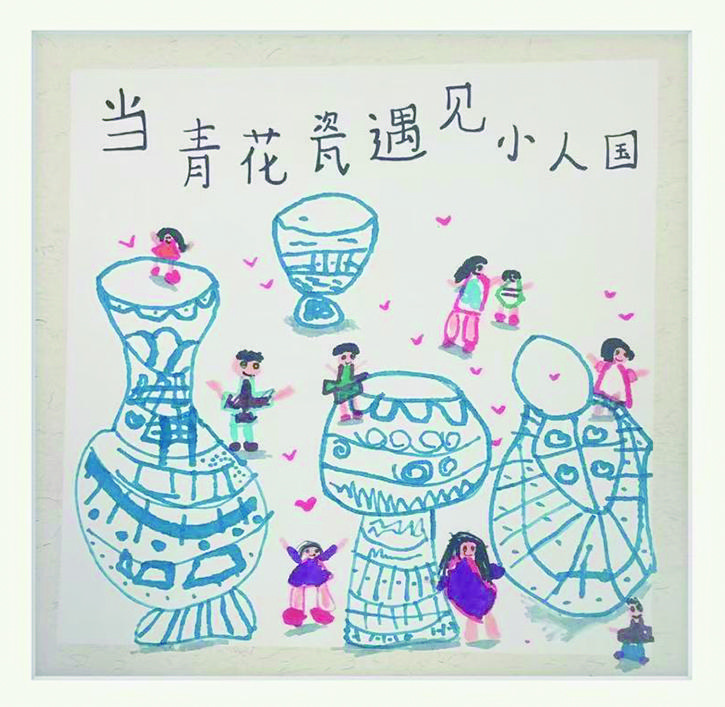 当青花瓷遇见小人国